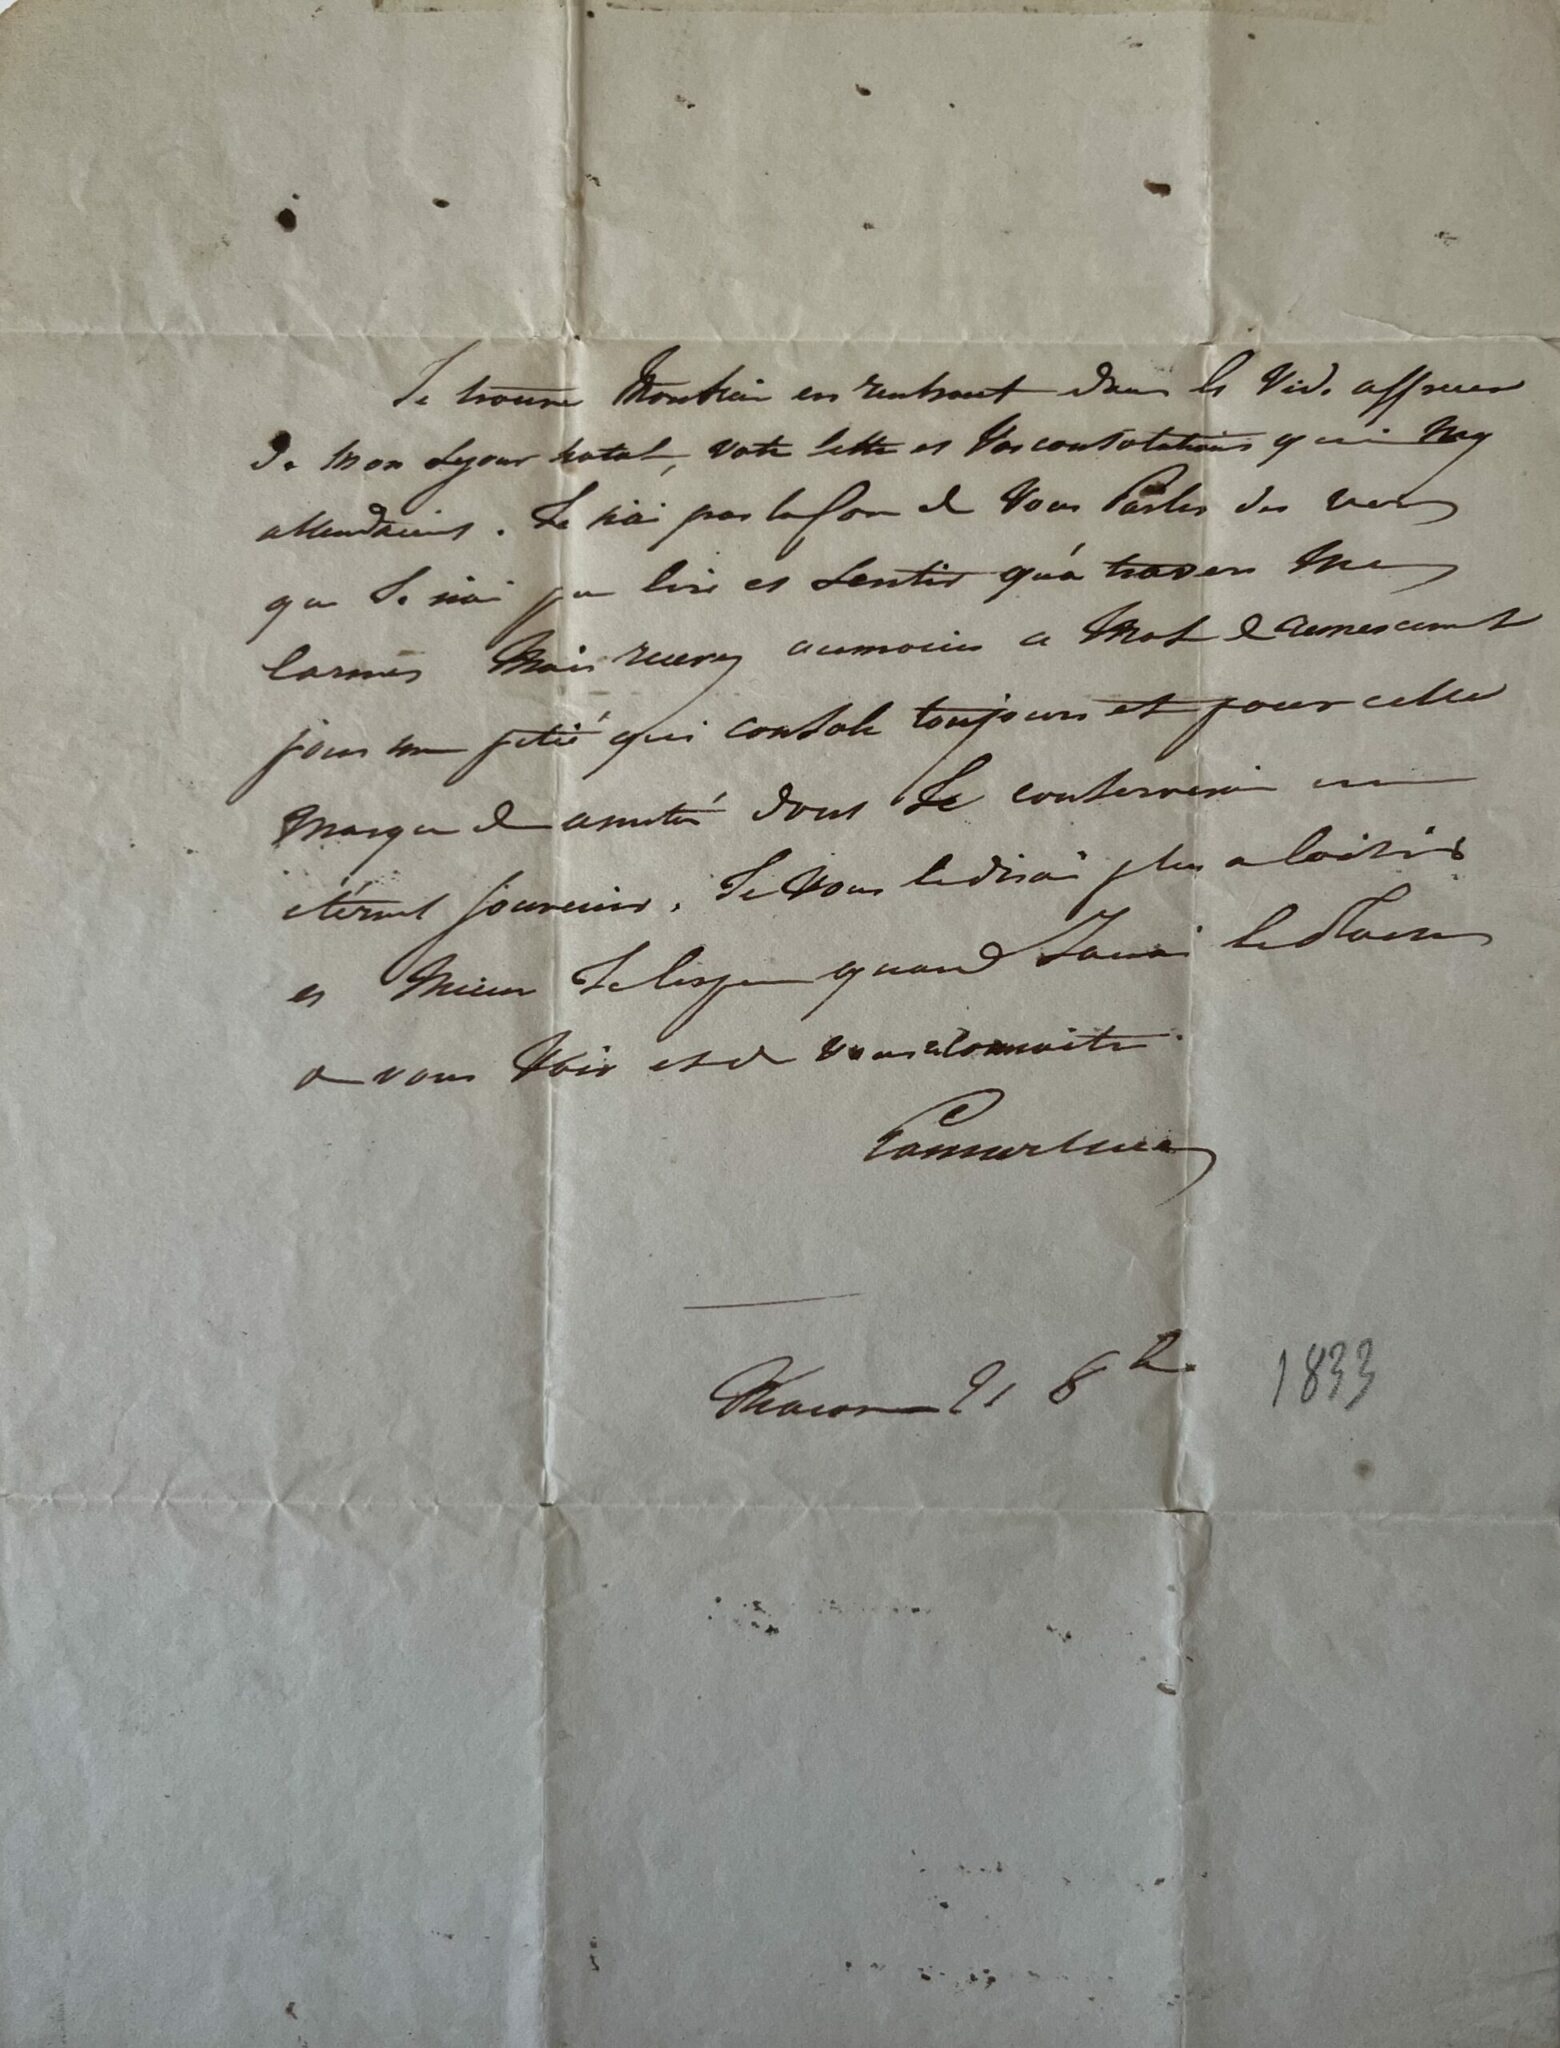 Je trouve Monsieur en rentrant dans le vide affreux
de mon sejour natal, votre lettre et vos consolations qui m'y
attendaient. Je n'ai pas la force de vous parler des vers
que je n'ai pu lire et sentir qu'à travers mes
larmes mais recevez aumoins ce mot de remerciement
pour une pitié qui console toujours et pour cette
marque de amitié dont je conserverai un
éternel souvenir. Je vous le dirai plus a loisir
et mieux je l'espere quand j'aurai le
a vous voir et de vous connoitre.
Lamartine
Macon 21 8bre
1833